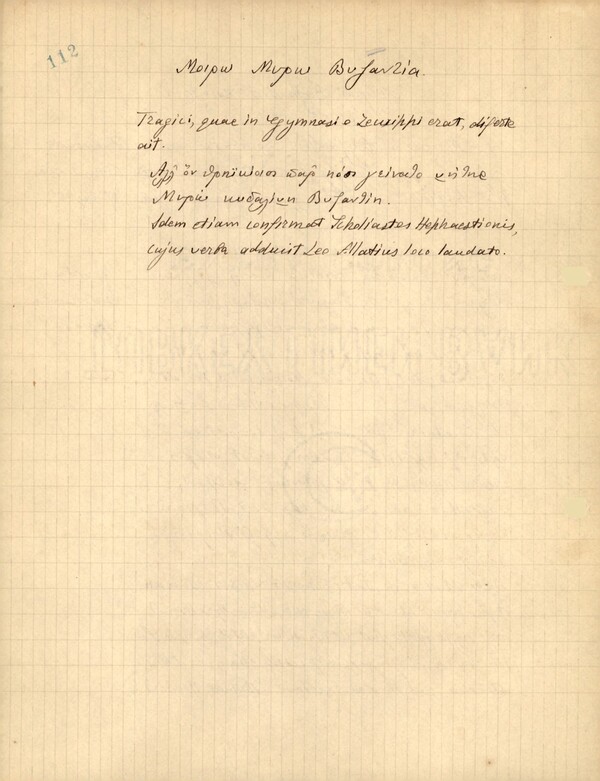 112
Μοιρω Μυρω Βυζαντία.
Tragici, quae in Gymnasio Zeusippi erat, diserte
ait.
Ἀλλ ὃν θρηϊκίοιο παρ γείνατο μήτηρ
Μυρὼ κυδαλίμη Βυζαντίη.
Idem etiam confirmat Scholiastes Hephaestionis,
cujus verba adducit Leo Allatius loco laudato.